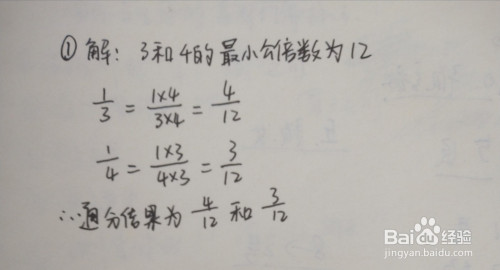 ① 解：3和4的最小公倍数为12
1/3 = 1×4/3×4 = 4/12
1/4 = 1×3/4×3 = 3/12
∴通分结果为 4/12 和 3/12
Baidu经验
jingyan.baidu.com